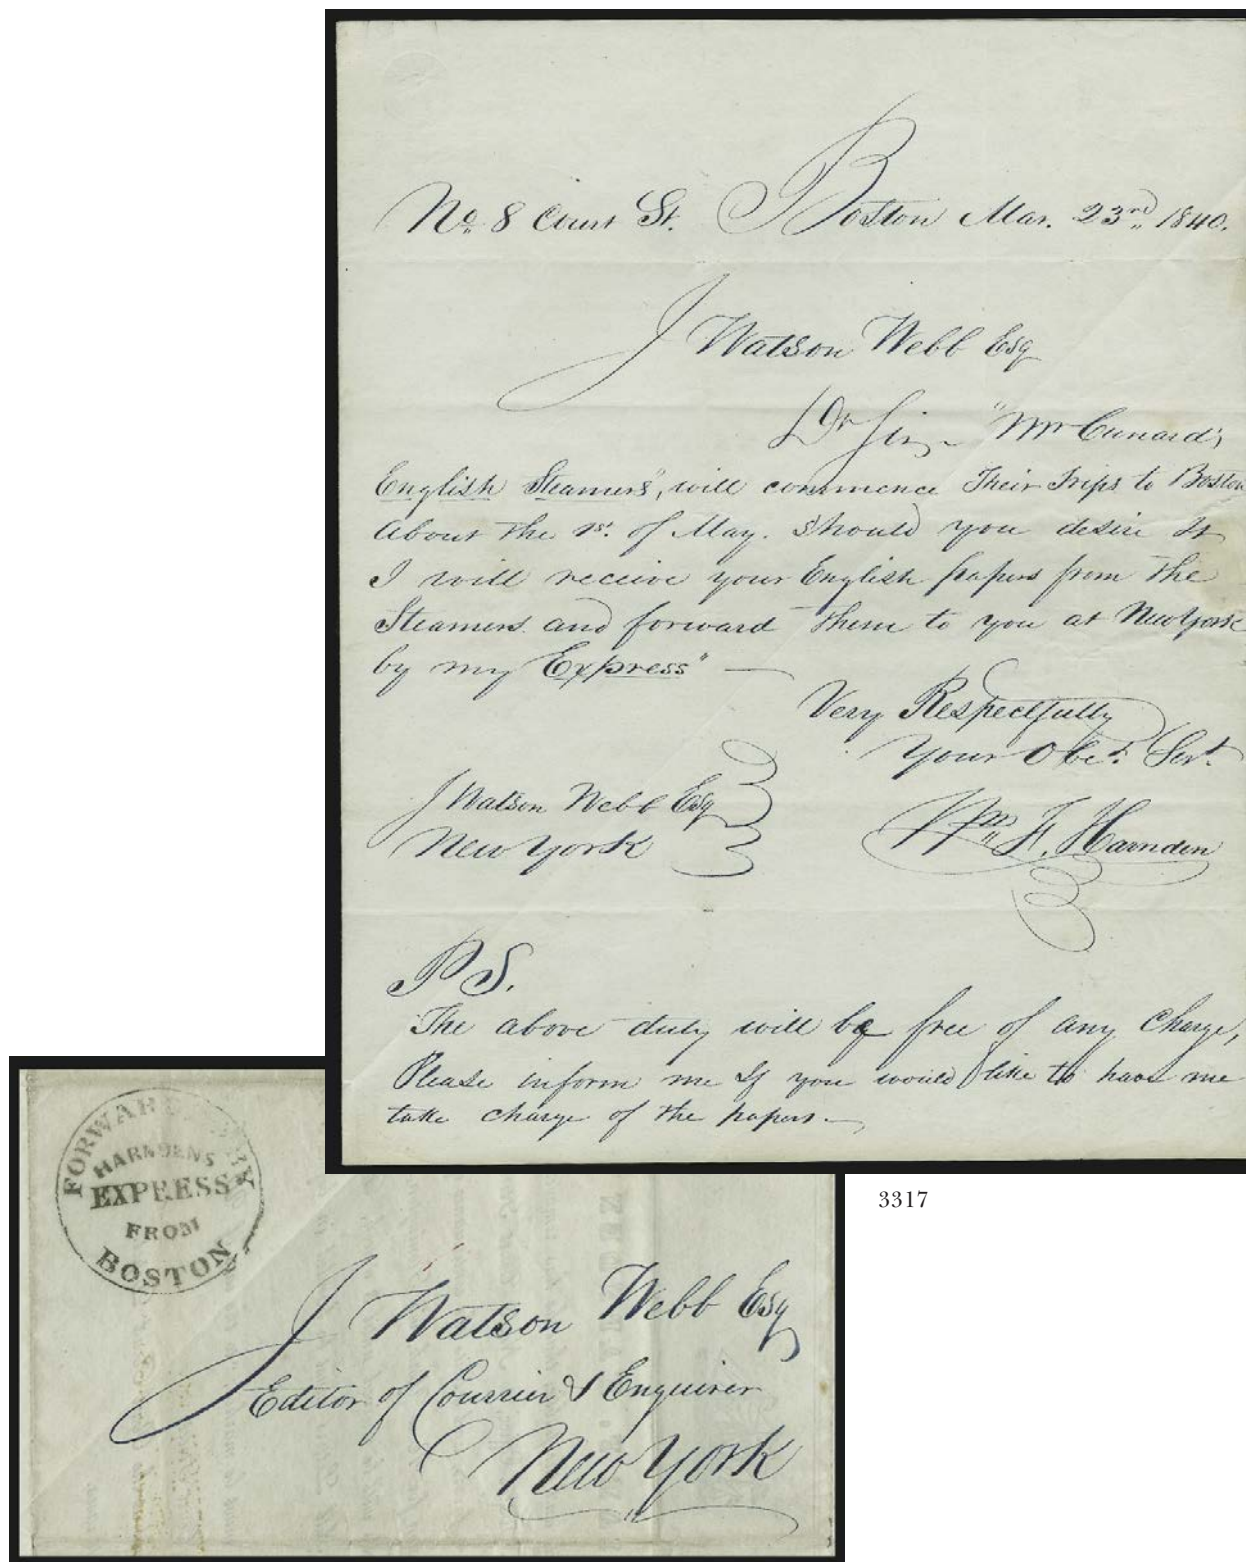 No. 8 Court St. Boston Mar. 23rd, 1840.
J Watson Webb Esq
Dr Sir, "Mr Cunard's
English Steamers", will commence Their Trips to Boston
About the 1st. of May. Should you desire It
I will receive your English papers from the
Steamers and forward them to you at New York
by my Express" —
Very Respectfully
Your Obet. Servt.
J Watson Webb Esq
New York
Wm F. Harnden
P S.
The above duty will be free of any Charge,
Please inform me If you would like to have me
take charge of the papers. —
3317
FORWARDED BY
HARNDENS
EXPRESS
FROM
BOSTON
J Watson Webb Esq
Editor of Courrier & Enquirer
New York